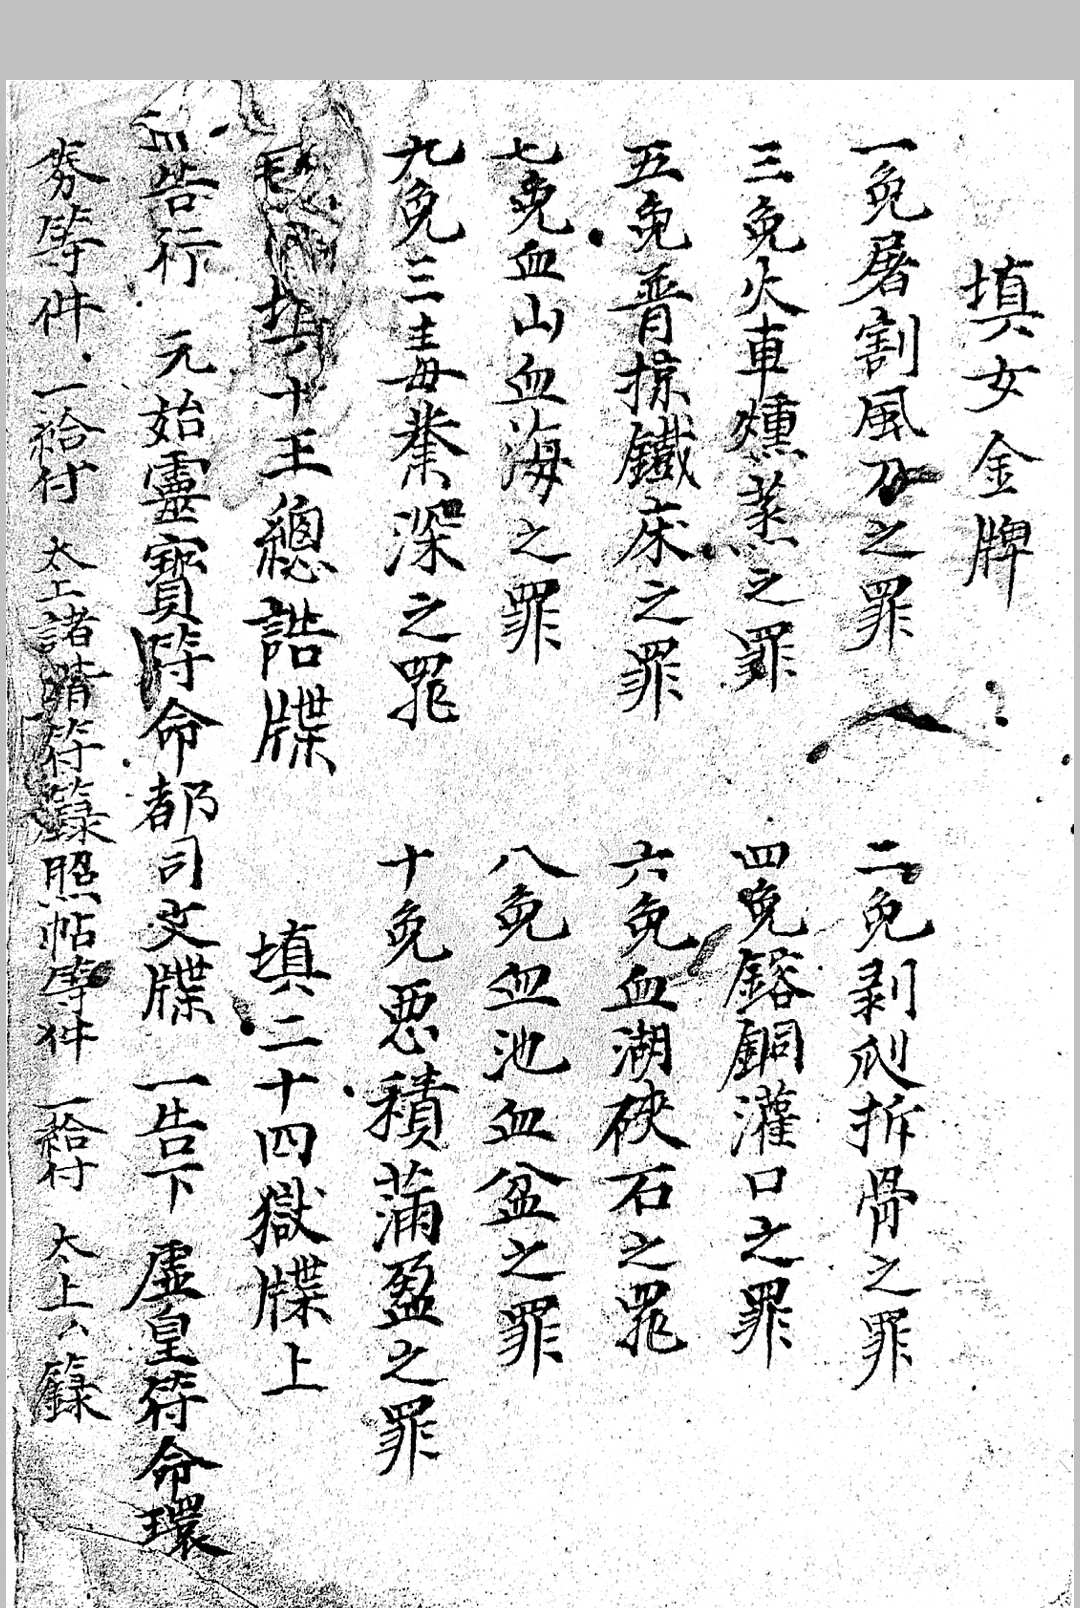 填女金牌
一免屠割風刀之罪 二免剥𠛅拆骨之罪
三免火車燻蒸之罪 四免鎔銅灌口之罪
五免晋掠鐵床之罪 六免血湖硤石之罪
七免血山血海之罪 八免血池血盆之罪
九免三毒業深之罪 十免悪積蒲盈之罪
填十王總誥牒 填二十四獄牒上
告行 元始靈寳符命都司文牒 一告下 虛皇符命環
券等件 一給付 太上諸階符籙照帖等件 一給付 太上六籙